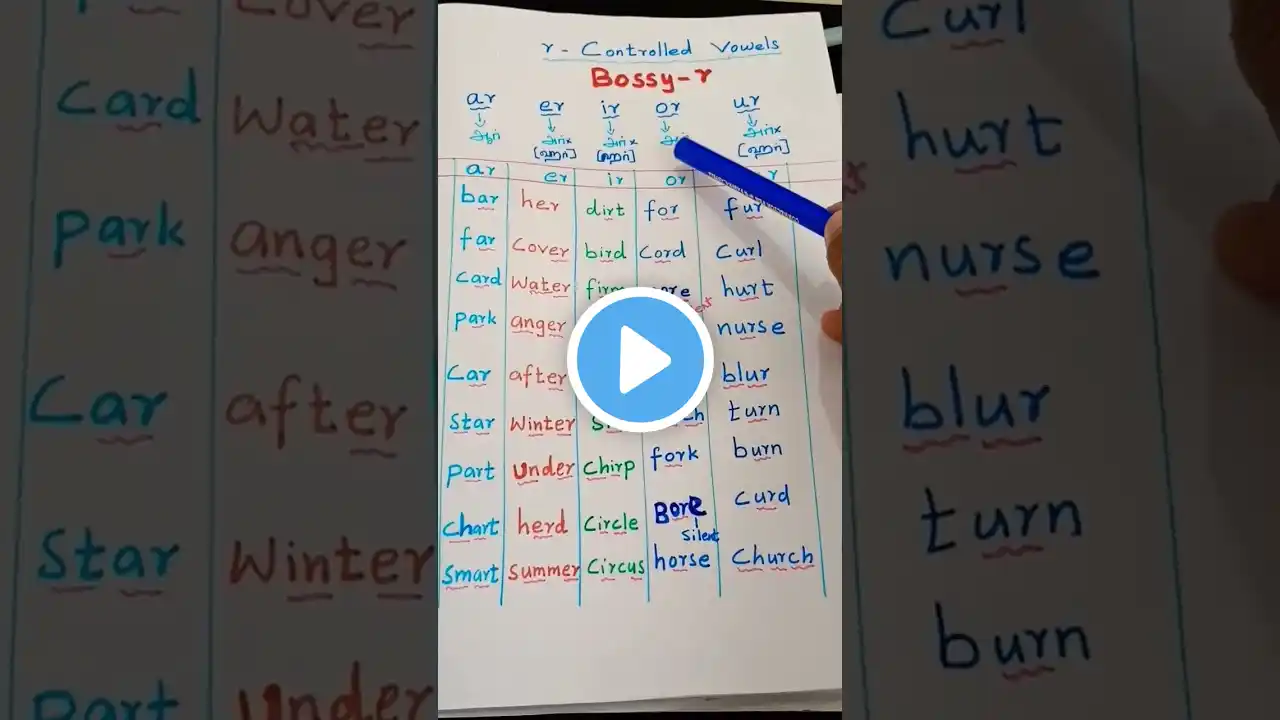 r - Controlled Vowels
Bossy-r
ar er ir or ur
ஆர் அர்x அர்x அர்x
[ஹர்] [ஹர்] [ஹர்]
ar er ir or r
bar her dirt for fur
far Cover bird Cord Curl
Card Water firm hurt
Park anger nurse
Car after blur
Star Winter turn
Part Under Chirp fork burn
Chart herd Circle Bore curd
Silent
Smart Summer Circus horse Church
Cover
Card Water
Park anger
Car after
Star Winter
Part Under
Curl
hurt
nurse
blur
turn
burn